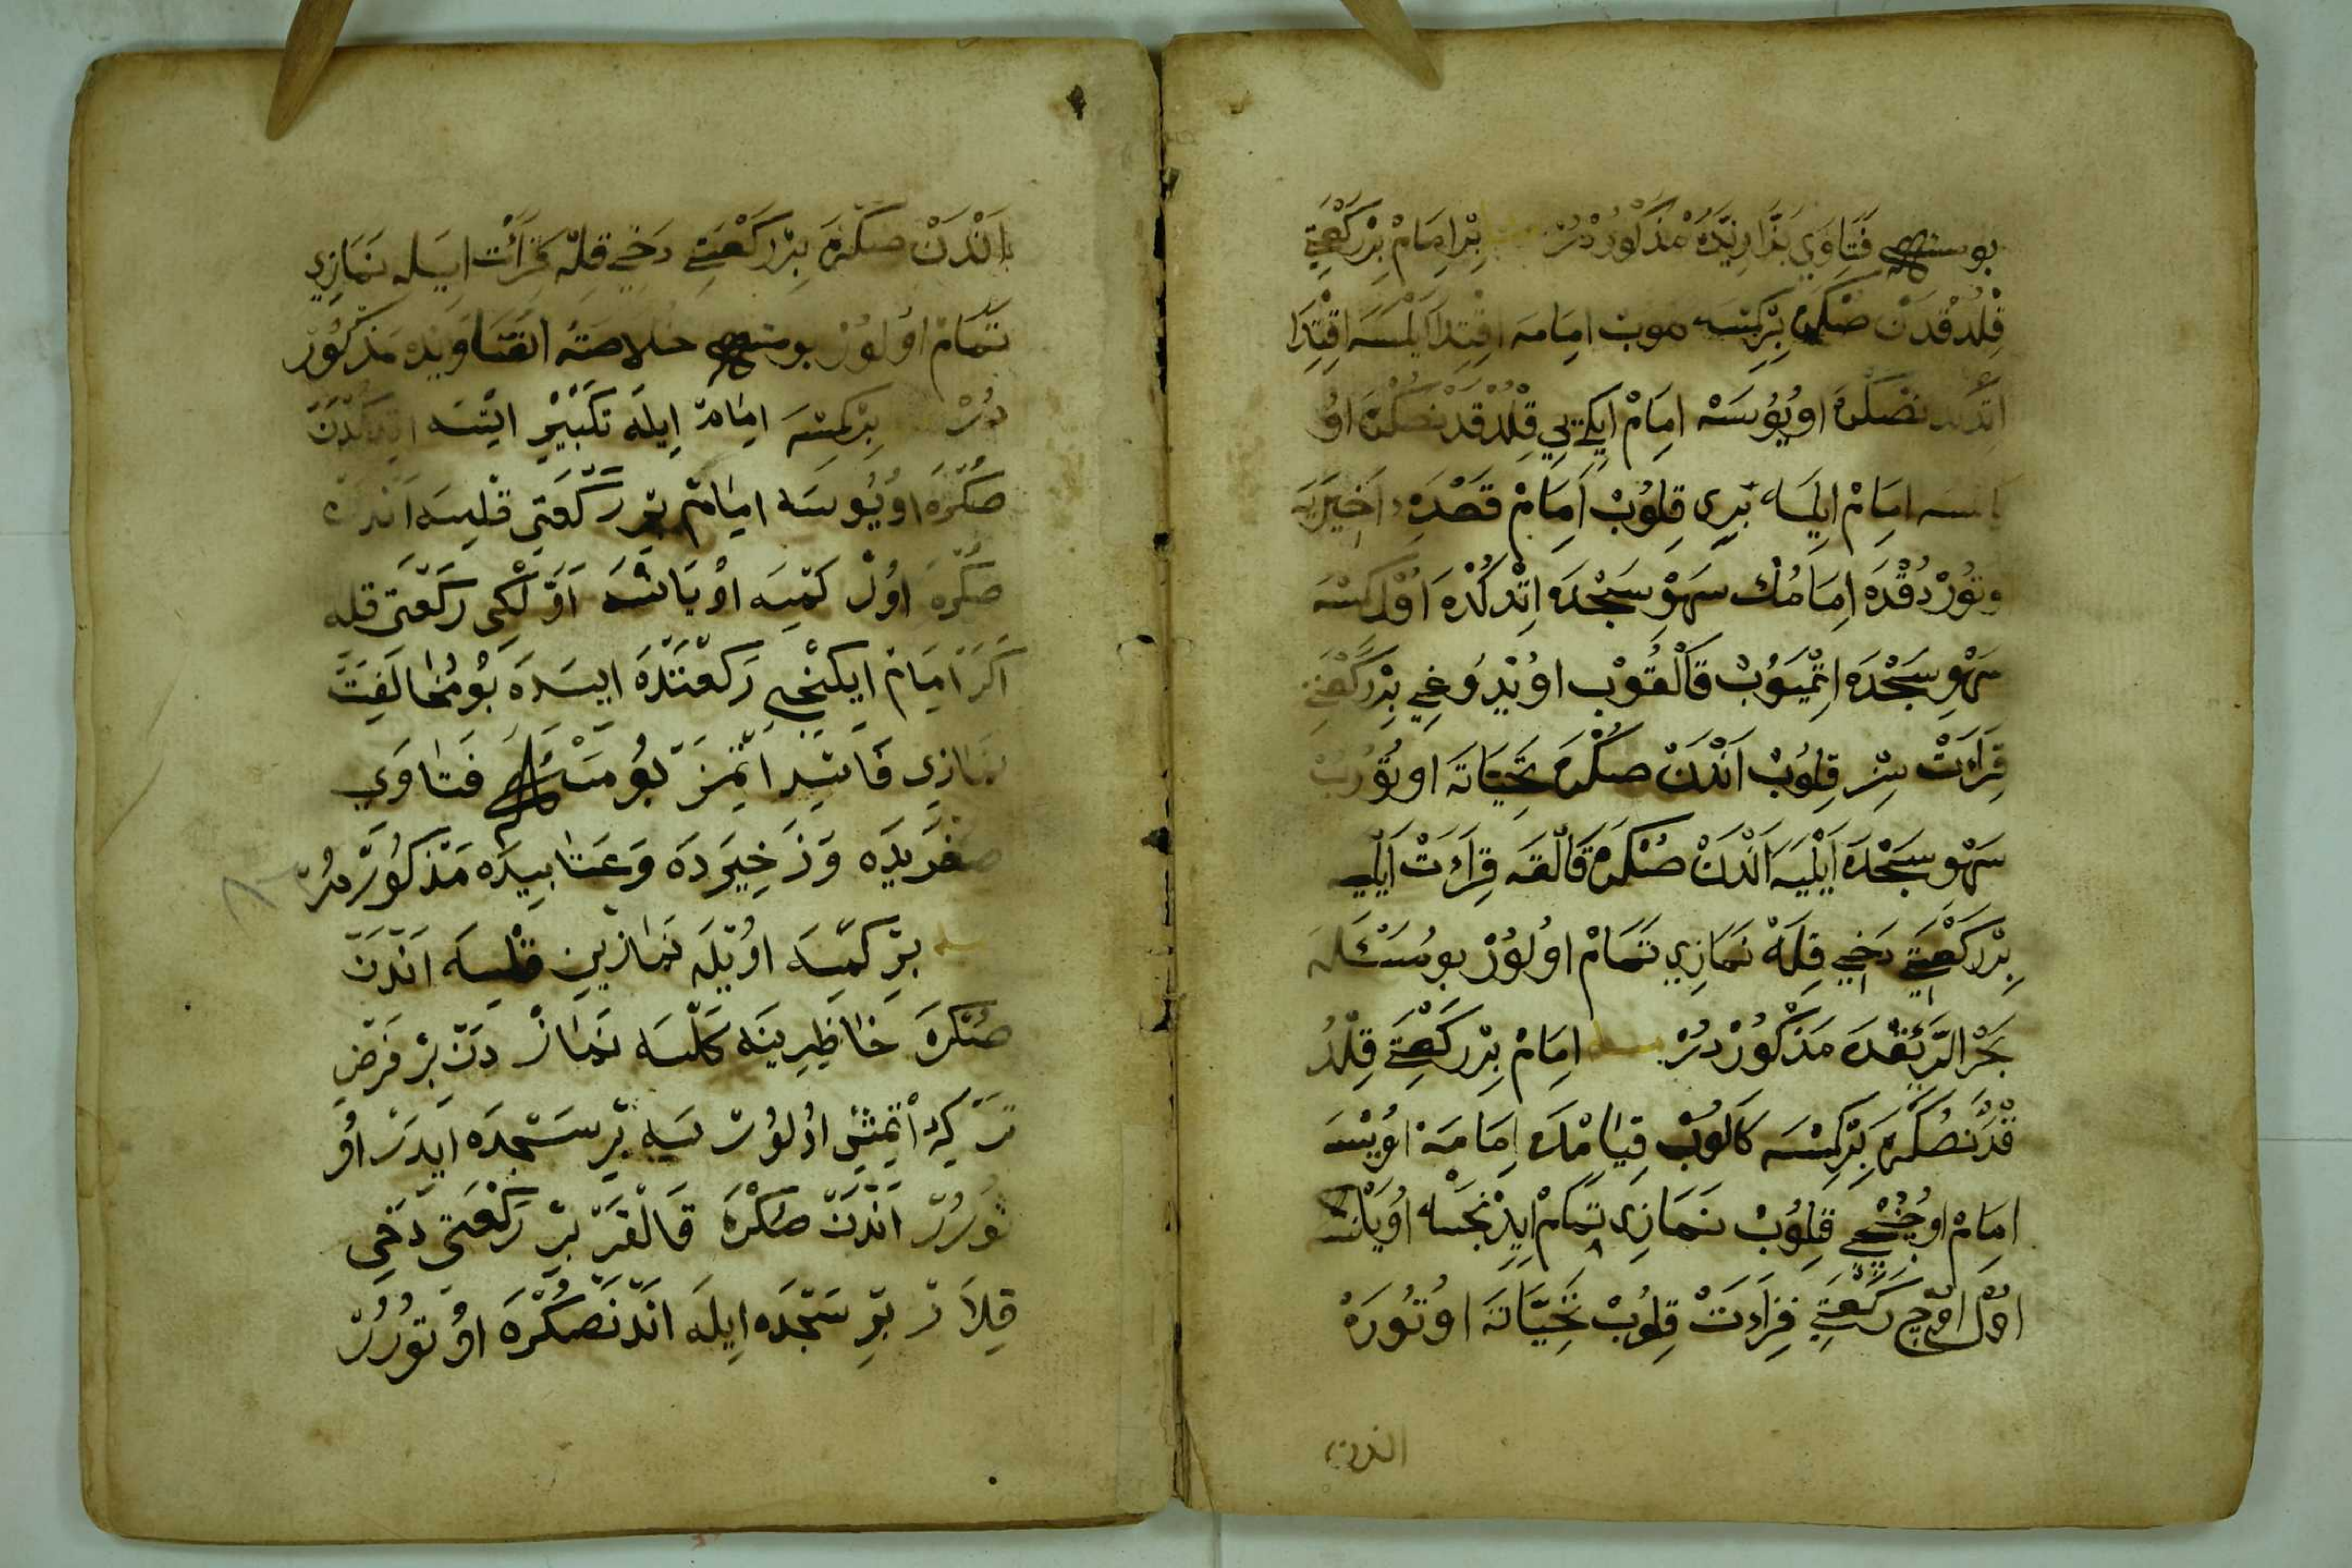 بو مسئله فَتَاوِي بَزَّازِيَّدَهْ مَذْكُورْدُرْ بِرْ اِمَامْ بِرْ رَكْعَتِ
قِلْدُقْدَنْ صُكْرَه بِرْ كِمْسَه اِمَامَه اِقْتِدَا اَيْلَسَه اِقْتِدَا
صُكْرَه اُويُوسَه اِمَامْ اِيكِيِي قِلْدُقْدَنْصُكْرَه اُو
اِمَامْ اِيلَه بِرِي قِلُوبْ اِمَامْ قَعْدَهِٔ اَخِيرَيَه
وتُوُرْدُقْدَه اِمَامُكْ سَهْوِ سَجْدَه اِتْدُكُدَه اُوُل كِمْسَه
سَهْوِ سَجْدَه اِتْمَيُوبْ قَالْقُوبْ اُويْدُوغِي بِرْ رَكْعَتِي
قِرَاءَتْ سِزْ قِلُوبْ اَنْدَنْ صُكْرَه تَحِيَّاتَه اوتُورُبْ
سَهْو سَجْدَه اَيْلَيَه اَنْدَنْ صُكْرَه قَالْقَه قِرَاءَتْ اَيْلَه
بِرْ رَكْعَتِ دَخِي قِلَه نَمَازِي تَمَامْ اُولُورْ بو مَسْئَلَه
بَحْرُ الرَّئِقْدَه مَذْكُورْدُرْ مسئله اِمَامْ بِرْ رَكْعَتِ قِلْدُ
قْدَنْصُكْرَه بِرْ كِمْسَه كَلُوبْ قِيَامْدَه اِمَامَه اُويْسَه
اِمَامْ اوُچُنْجِي قِلُوبْ نَمَازِي تَمَامْ اِيدِنْجَه اُويَانْسَه
اوُل اوُچْ رَكْعَتِ قِرَاءَتْ قِلُوبْ تَحِيَّاتَه اوُتُورَه
اندن
اَنْدَنْ صُكْرَه بِرْ رَكْعَتِ دَخِي قِلَه قِرَائَتْ اِيلَه نَمَازِي
تَمَامْ اوُلُورْ بو مسئله خلاصَةُ الفَتَاوِيدَه مَذْكُورْ
دُرْ بِرْ كِمْسَه اِمَامْ اِيلَه تَكْبِيْر اِتْسَه
صُكْرَه اوُيُوسَه اِمَامْ بِرْ رَكْعَتِي قِلْسَه اَنْدَنْ
صُكْرَه اوُلْ كِمْسَه اوُيَانْسَه اَوَّلْكِي رَكْعَتِي قِلَه
اَكَرْ اِمَامْ اِيكِنْجِي رَكْعَتْدَه اِيسَدَه بُو مُخَالَفَتْ
نَمَازِي فَاسِدْ اِتْمَزْ بُو مَسْئَلَه فَتَاوَي
صُغْرَيدَه وَ ذَخِيرَدَه وَ عَتَابِيدَه مَذْكُورْدُرْ
مسئله بِرْ كِمْسَه اوُيْلَه نَمَازِينِ قِلْسَه اَنْدَنْ
صُكْرَه خَاطِرِينَه كَلْسَه نَمَازْ دَنْ بِرْ فَرْضِ
تَرْكِ اِتْمِشْ اوُلُورْسَه بِرْ سَجْدَه اِيدَرْ اوُ
تُورُرْ اَنْدَنْ صُكْرَه قَالْقَرْ بِرْ رَكْعَتِي دَخِي
قِلَارْ بِرْ سَجْدَه اِيلَه اَنْدَنْصُكْرَه اوُتُورُرْ